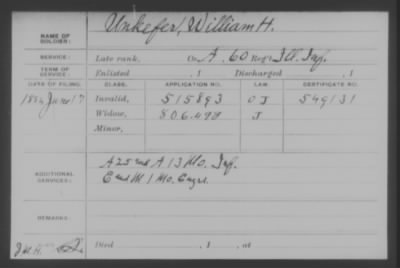 NAME OF SOLDIER: Unkefer, William H.
SERVICE: Late rank, Co. A, 60 Reg't Ill. Inf.
TERM OF SERVICE: Enlisted , 1 Discharged , 1
DATE OF FILING. CLASS. APPLICATION NO. LAW. CERTIFICATE NO.
1884 June 17 Invalid, 515893 O J 549131
Widow, 806.498 J
Minor,
ADDITIONAL SERVICES: A 25 and A 13 Mo. Inf.
E and M 1 Mo. Engrs.
REMARKS:
Died , 1 , at